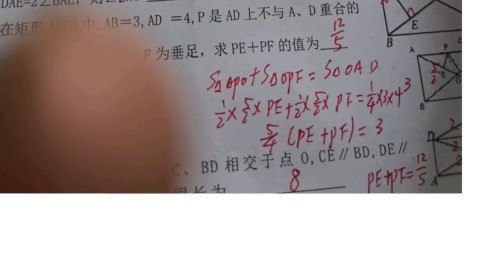 DAE=2∠BAE,
在矩形 中,AB=3,AD =4,P 是 AD 上不与 A、D 重合的
F 为垂足，求 PE+PF 的值为 12/5
S△APO+S△OPF=S△OAD
1/2×5/2×PE+1/2×5/2×PF=1/4×3×4
5/4(PE+PF)=3
C、BD 相交于点 O,CE∥BD,DE∥
PE+PF=12/5
长为 8
B E
A P
B
D 2
A